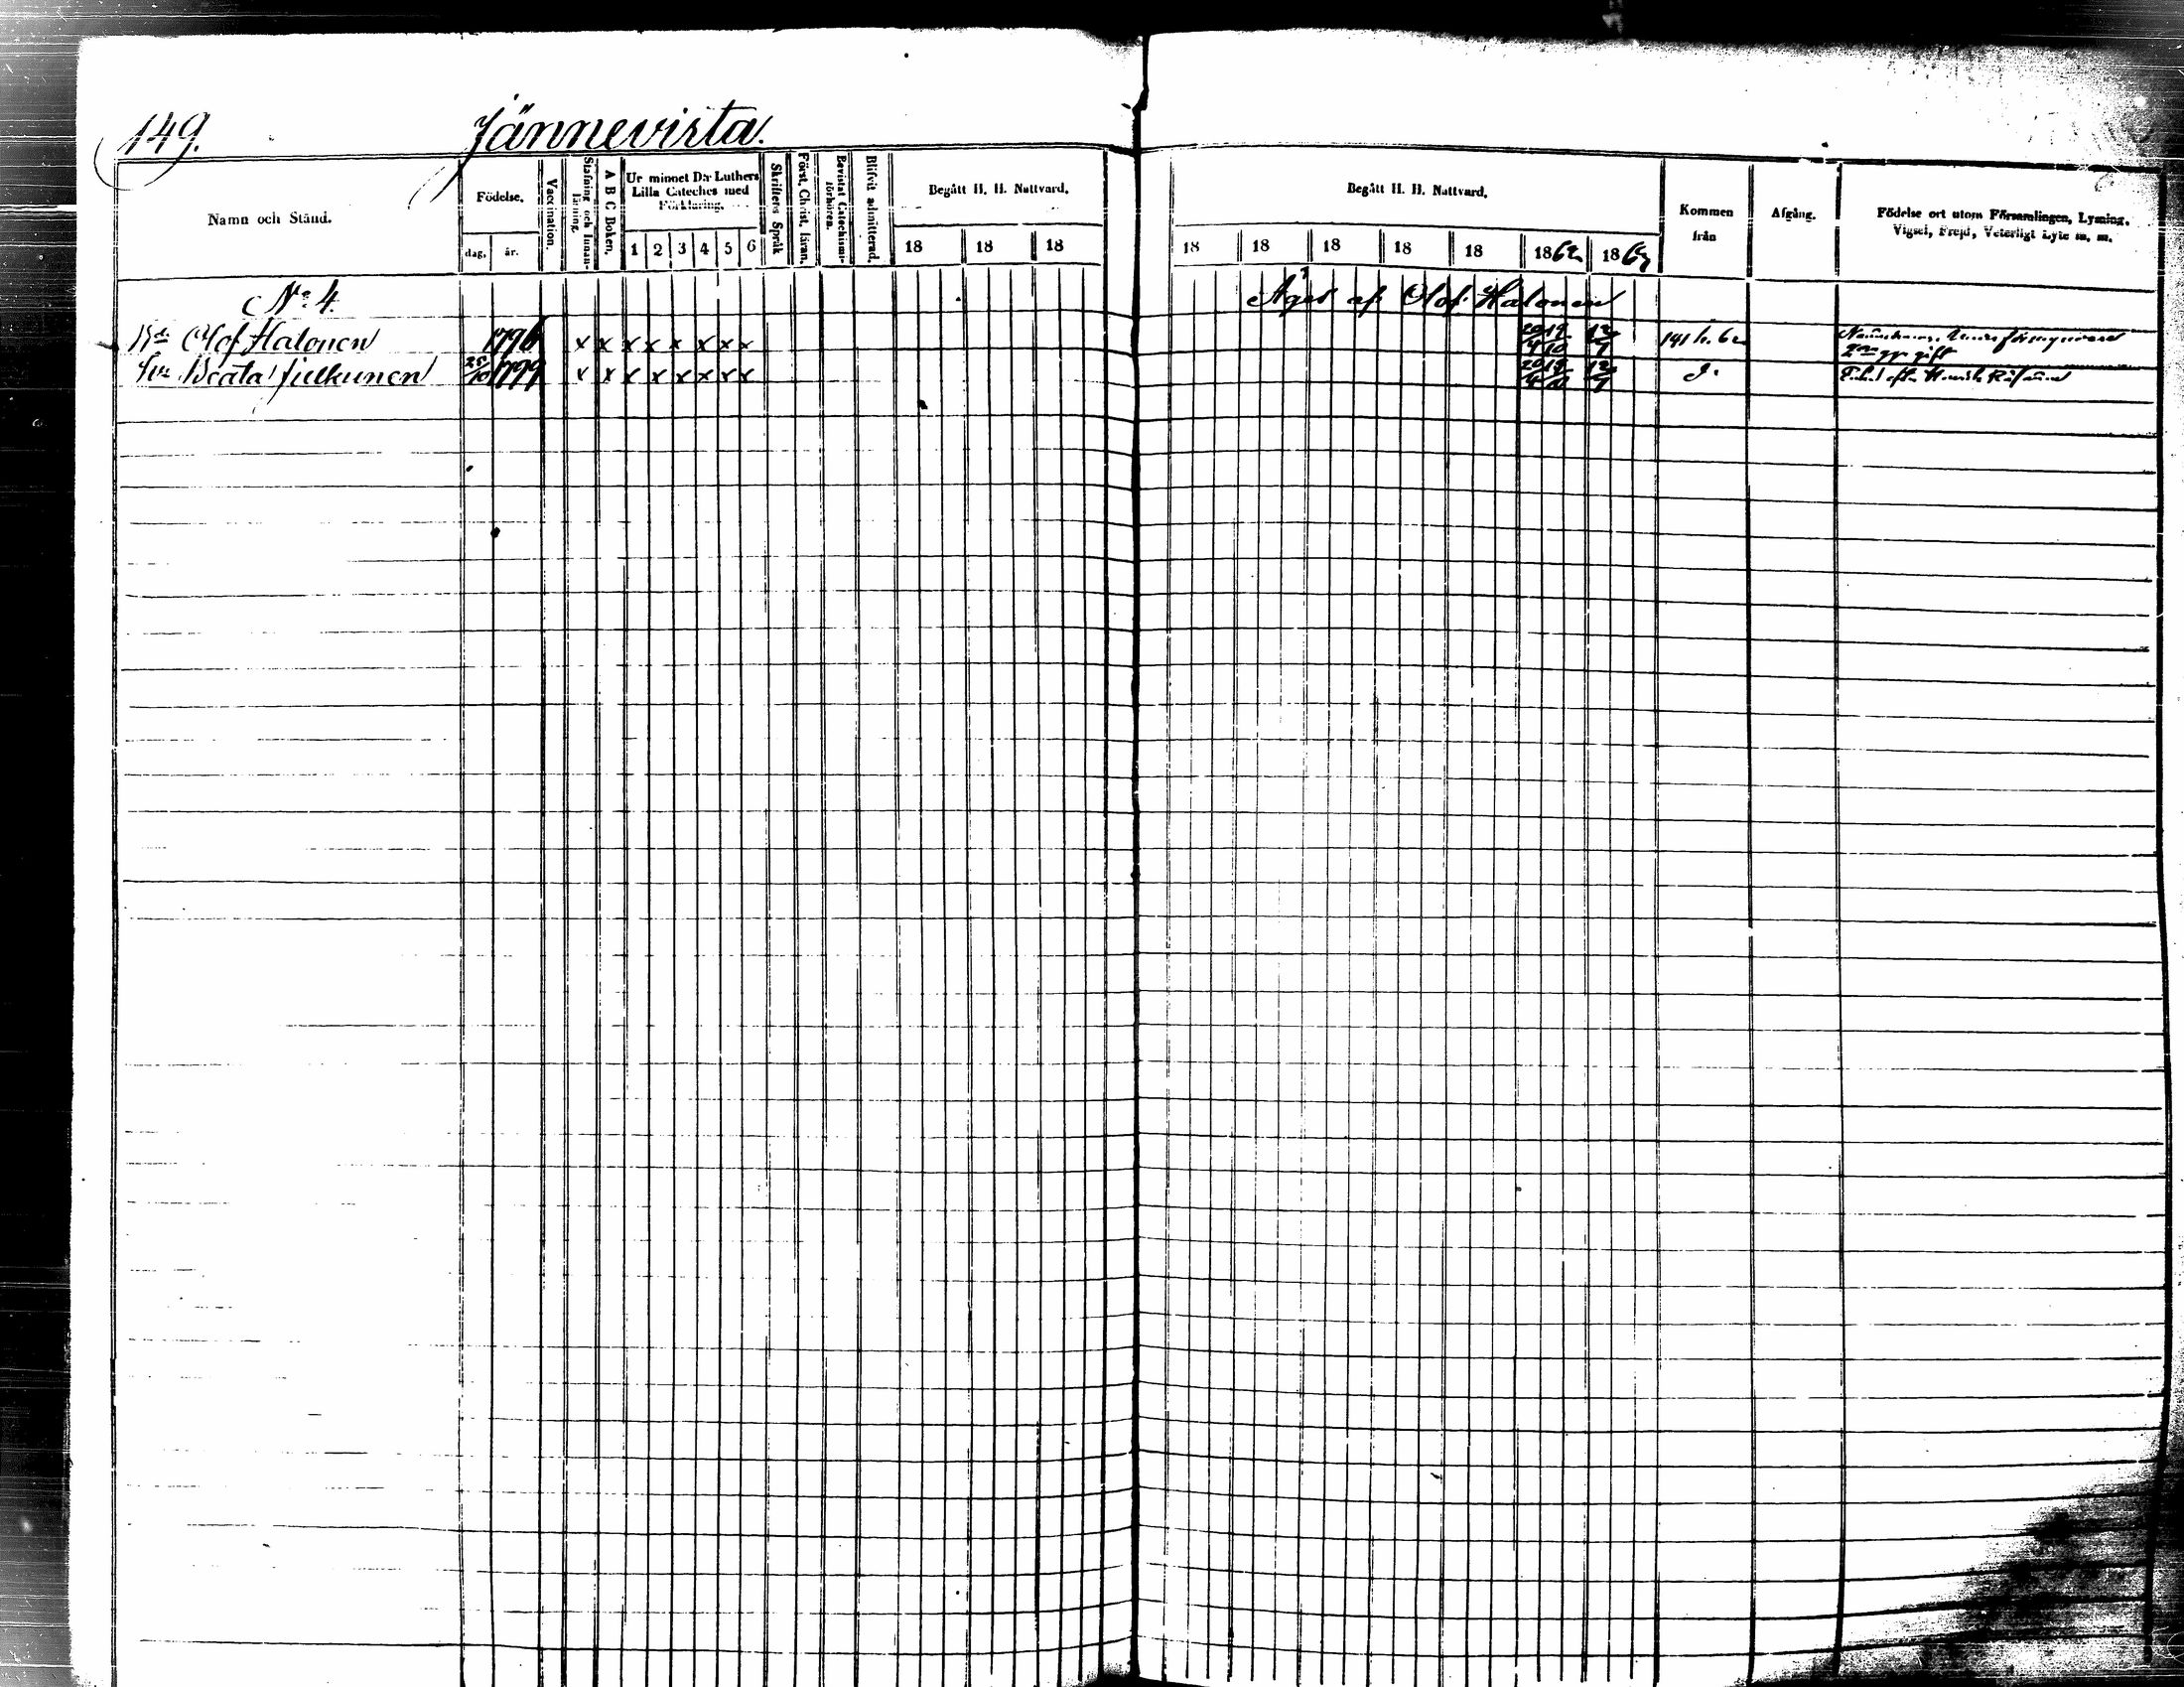 149. Jännevirta.
Namn och Stånd.
Födelse.
dag. år.
Vaccination.
Stafning och Innan-läsning.
A B C Boken.
Ur minnet D:r Luthers Lilla Cateches med Förklaring.
1 2 3 4 5 6
Skriftens Språk
Först. Christ. läran.
Bevistat Catechismi-förhören.
Blifvit admitterad.
Begått H. H. Nattvard.
18 18 18
Begått H. H. Nattvard.
18 18 18 18 18 1862 1863
Kommen från
Afgång.
Födelse ort utom Församlingen, Lysning, Vigsel, Frejd, Veterligt Lyte m. m.
No 4. Äges af Olof Halonen
Bd. Olof Halonen 1796 x x x x x x x x 20/4 19/10 12/7 141 h. 62
2 gift
Beata Julkunen 25/10 1799 x x x x x x x x 20/4 19/10 12/7 d: